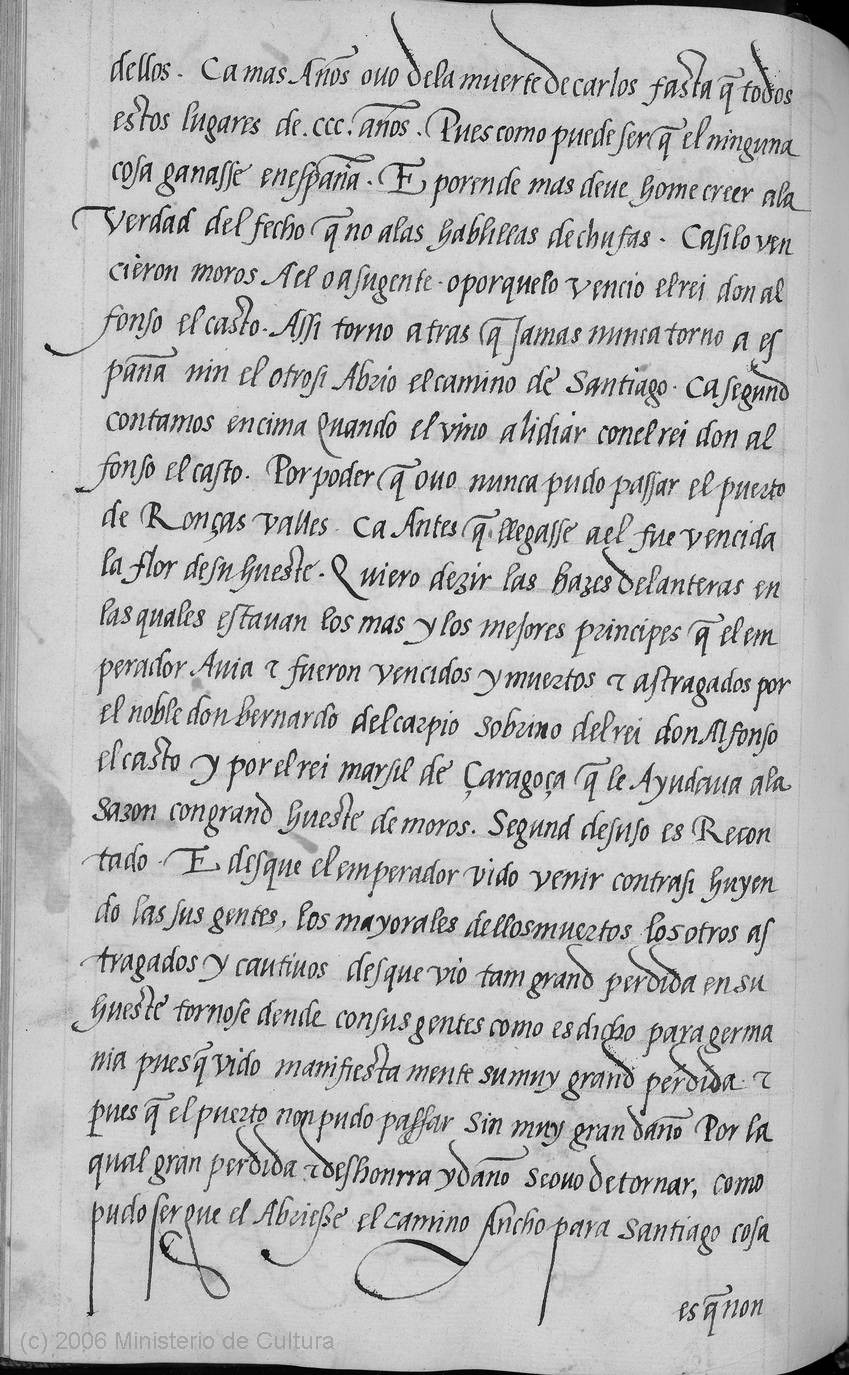 dellos. Ca mas Años ouo dela muerte de carlos fasta q̃ todos
estos lugares de .ccc. años. Pues como puede ser q̃ el ninguna
cosa ganasse en españa. E porende mas deue home creer ala
verdad del fecho q̃ no alas hablillas de chufas. Ca si lo ven
cieron moros A el o a su gente. o porque lo vencio el rei don al
fonso el casto. Assi torno atras q̃ Jamas nunca torno a es
paña nin el otrosi Abrio el camino de Santiago. Ca segund
contamos encima Quando el vino a lidiar con el rei don al
fonso el casto. Por poder q̃ ouo nunca pudo passar el puerto
de Ronças valles. Ca Antes q̃ llegasse a el fue vencida
la flor de su hueste. Quiero dezir las hazes delanteras en
las quales estauan los mas y los mejores principes q̃ el em
perador Auia τ fueron vencidos y muertos τ astragados por
el noble don bernardo del carpio sobrino del rei don Alfonso
el casto y por el rei marsil de Çaragoça q̃ le Ayudaua ala
sazon con grand hueste de moros. Segund desuso es Recon
tado. E desque el emperador vido venir contra si huyen
do las sus gentes, los mayorales dellos muertos los otros as
tragados y cautiuos desque vio tam grand perdida en su
hueste tornose dende con sus gentes como es dicho para germa
nia pues q̃ vido manifiesta mente su muy grand perdida. τ
pues q̃ el puerto non pudo passar sin muy gran daño Por la
qual gran perdida τ deshonrra y daño se ouo de tornar, como
pudo ser que el Abriesse el camino Ancho para Santiago cosa
es q̃ non
(c) 2006 Ministerio de Cultura